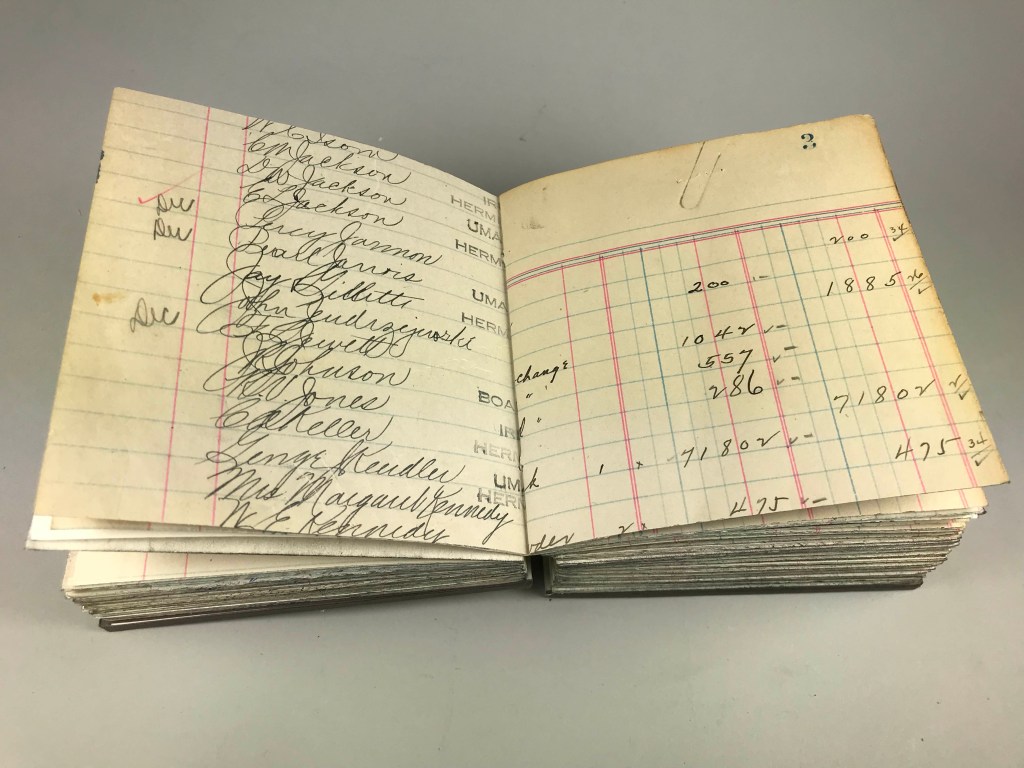 C M Jackson
D W Jackson
Dec E Jackson
Dec Percy Jarmon
Jay Gillette
Dec John
Jewett
Johnson
E W Jones
E A Keller
George Kendler
Mrs Margaret Kennedy
W. E. Kennedy
IR
HERM
UMA
HERM
UMA
HERM
BOA
IR
HERM
UM
HERM
3
200 34
200 -
1885 26
1042 -
change 557 -
" 286 -
" 71802
k 1 x 71802 -
475 34
der 2 x 475 -